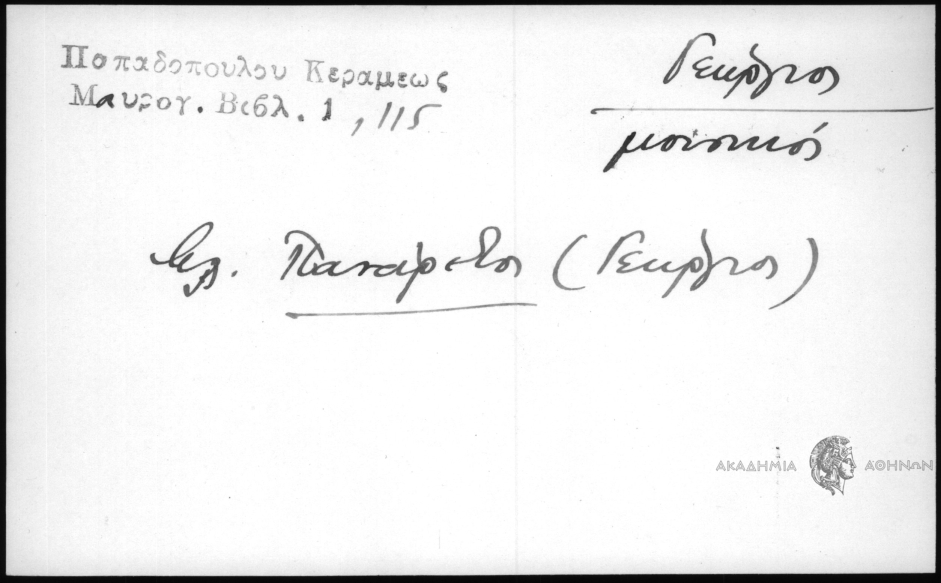 Παπαδοπουλου Κεραμεως
Μαυρογ. Βιβλ. 1, 115
Γεώργιος
μουσικός
βλ. Πανάρετος (Γεώργιος)
ΑΚΑΔΗΜΙΑ ΑΘΗΝΩΝ